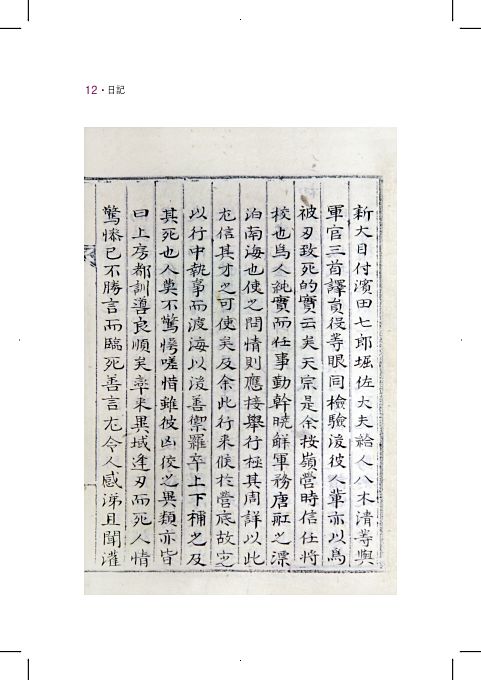 12・日記
新大目付濱田七郎堀佐大夫給人八木清等與
軍官三首譯員役等眼同檢驗後彼人輩亦以爲
被刃致死的實云矣天宗是余按嶺營時信任將
校也爲人純實而任事勤幹曉鮮軍務唐舡之漂
泊南海也使之問情則應接擧行極其周詳以此
尤信其才之可使矣及余此行來候於營底故
以行中執事而渡海以後善禦羅卒上下補之及
其死也人莫不驚愕嗟惜雖彼凶佼之異類亦皆
曰上房都訓導良順矣率來異域逢刃而死人情
驚慘已不勝言而臨死善言尤令人感涕且聞灌